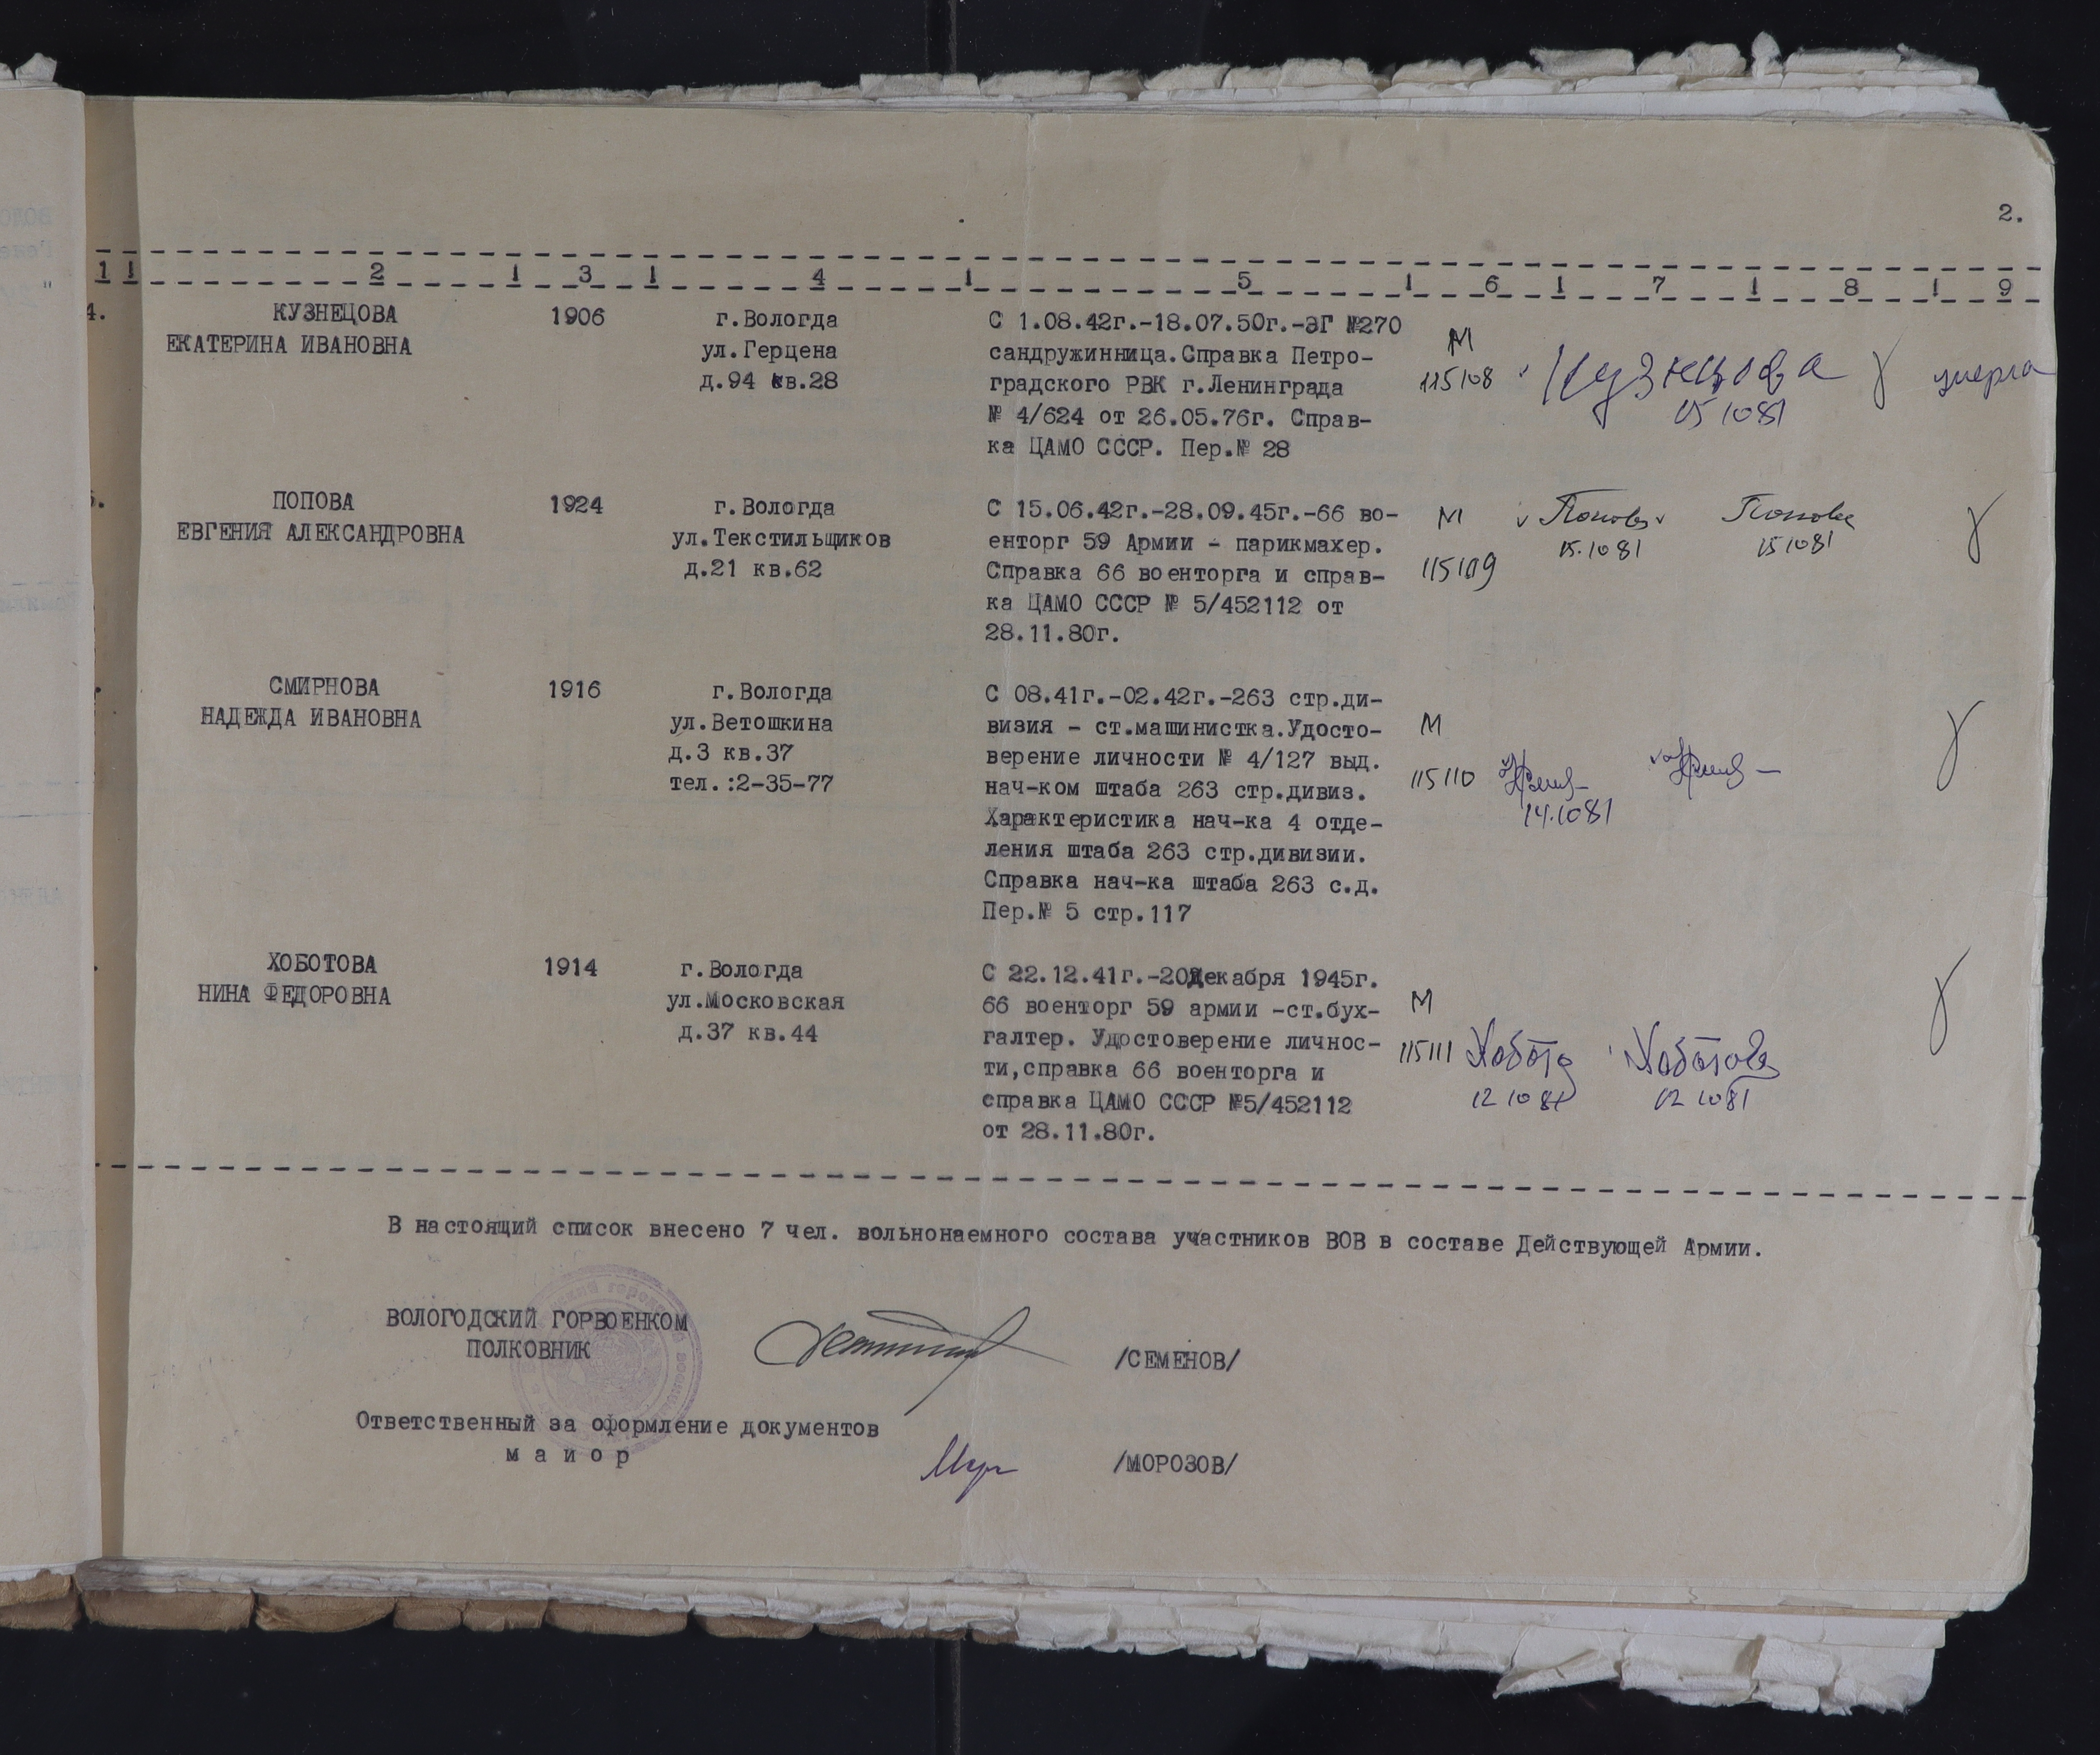 2.
1 1 2 1 3 1 4 1 5 1 6 1 7 1 8 1 9
4. КУЗНЕЦОВА
ЕКАТЕРИНА ИВАНОВНА
1906
г.Вологда
ул.Герцена
д.94 кв.28
С 1.08.42г.-18.07.50г.-ЭГ №270
сандружинница.Справка Петро-
градского РВК г.Ленинграда
№ 4/624 от 26.05.76г. Справ-
ка ЦАМО СССР. Пер.№ 28
М
115108
Кузнецова
15 10 81
умерла
ПОПОВА
ЕВГЕНИЯ АЛЕКСАНДРОВНА
1924
г.Вологда
ул.Текстильщиков
д.21 кв.62
С 15.06.42г.-28.09.45г.-66 во-
енторг 59 Армии - парикмахер.
Справка 66 военторга и справ-
ка ЦАМО СССР № 5/452112 от
28.11.80г.
М
115109
Попова
15.10 81
Попова
15 10 81
СМИРНОВА
НАДЕЖДА ИВАНОВНА
1916
г.Вологда
ул.Ветошкина
д.3 кв.37
тел.:2-35-77
С 08.41г.-02.42г.-263 стр.ди-
визия - ст.машинистка.Удосто-
верение личности № 4/127 выд.
нач-ком штаба 263 стр.дивиз.
Характеристика нач-ка 4 отде-
ления штаба 263 стр.дивизии.
Справка нач-ка штаба 263 с.д.
Пер.№ 5 стр.117
М
115110
14.10 81
ХОБОТОВА
НИНА ФЕДОРОВНА
1914
г.Вологда
ул.Московская
д.37 кв.44
С 22.12.41г.-20 декабря 1945г.
66 военторг 59 армии -ст.бух-
галтер. Удостоверение личнос-
ти,справка 66 военторга и
справка ЦАМО СССР №5/452112
от 28.11.80г.
М
115111
Хобото
12 10 81
Хоботова
12 10 81
В настоящий список внесено 7 чел. вольнонаемного состава участников ВОВ в составе Действующей Армии.
ВОЛОГОДСКИЙ ГОРВОЕНКОМ
ПОЛКОВНИК
/СЕМЕНОВ/
Ответственный за оформление документов
м а й о р
/МОРОЗОВ/